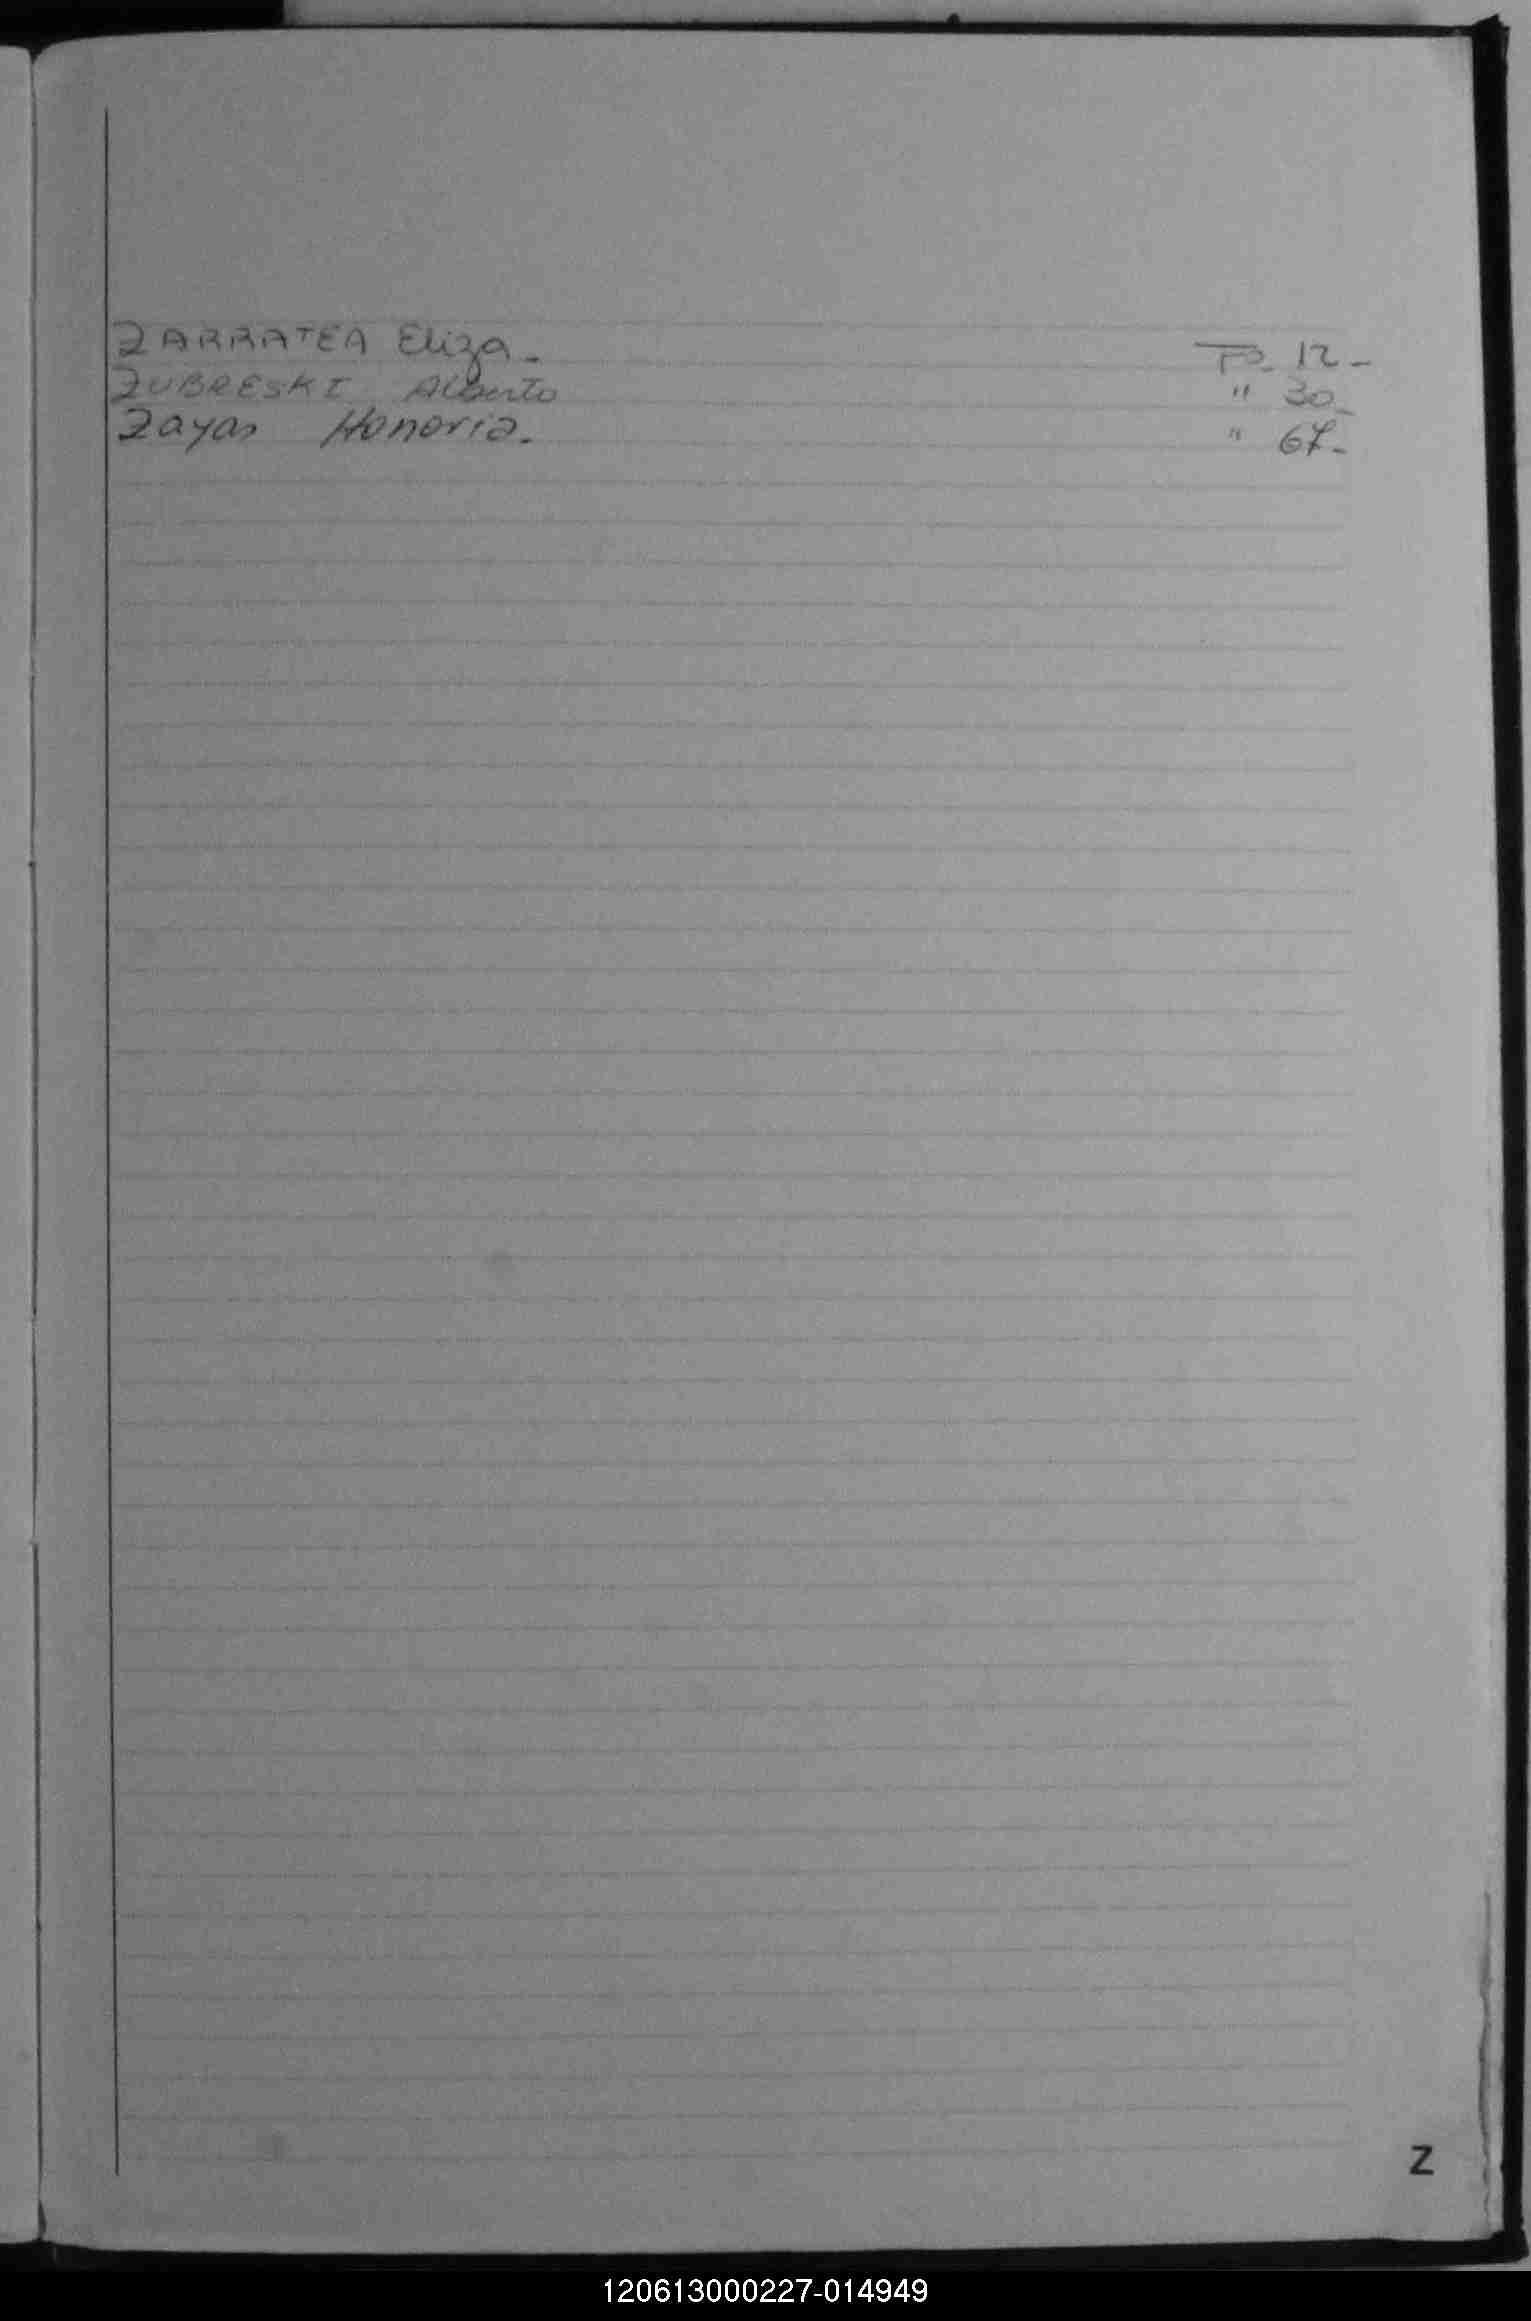 ZARRATEA Eliza. Fs. 12-
ZUBRESKI Alberto " 30-
Zayas Honoria. " 67-
Z
120613000227-014949